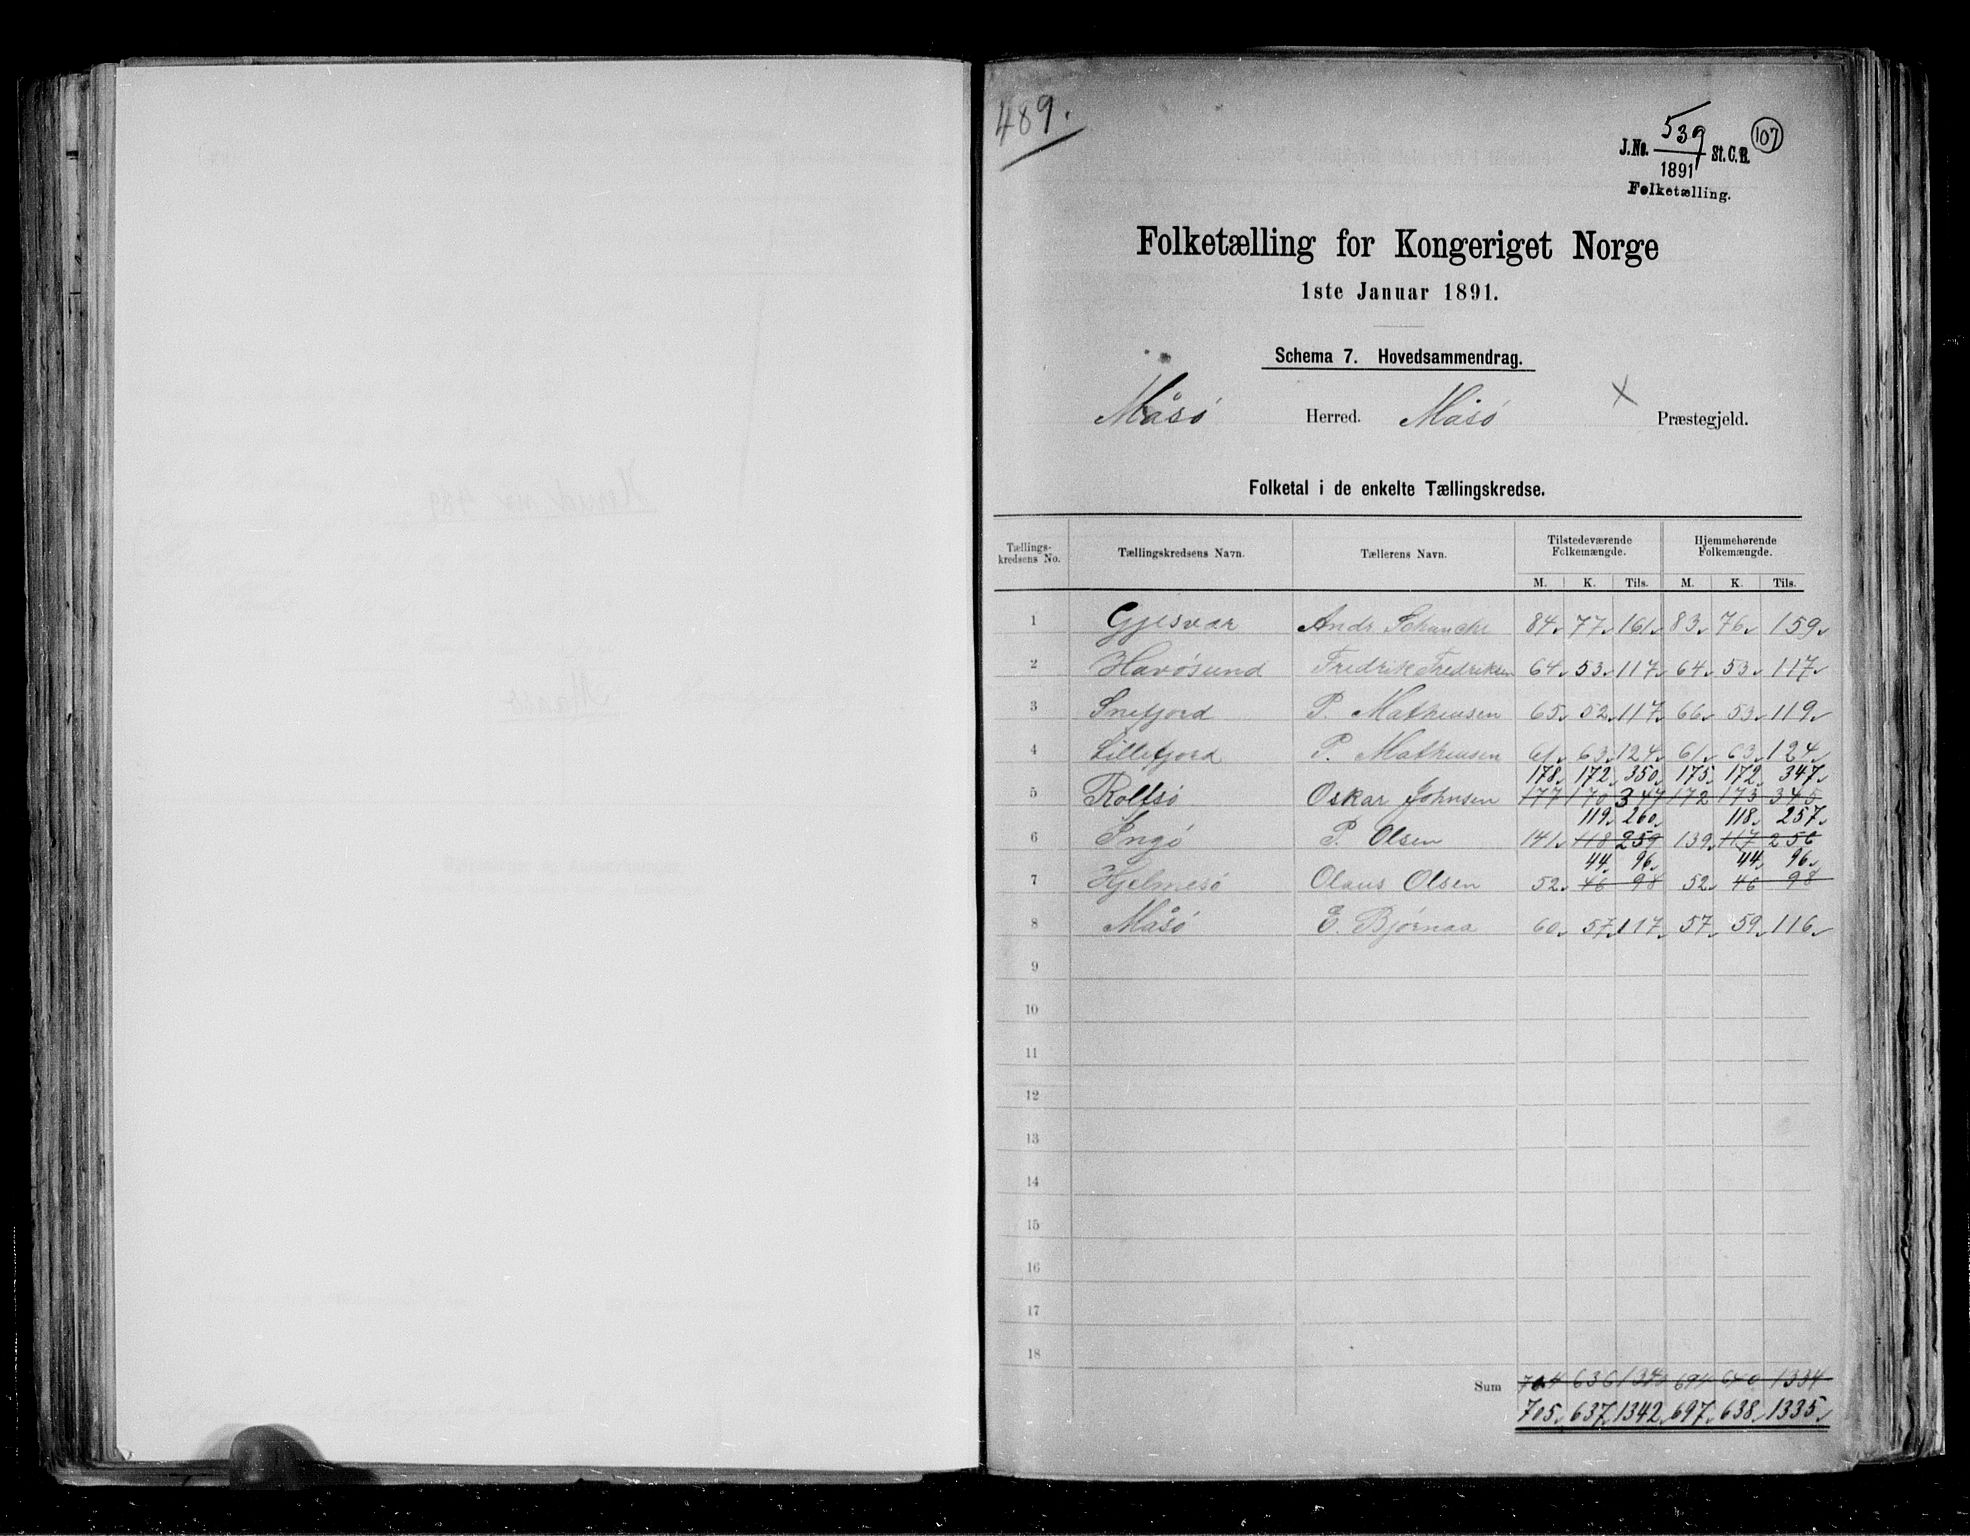 489.
J.No. 539/1891 St.C.B. 107
Folketælling.
Folketælling for Kongeriget Norge
1ste Januar 1891.
Schema 7. Hovedsammendrag.
Måsö Herred. Måsö Præstegjeld.
Folketal i de enkelte Tællingskredse.
Tællings-kredsens No. Tællingskredsens Navn. Tællerens Navn. Tilstedeværende Folkemængde. Hjemmehørende Folkemængde.
M. K. Tils. M. K. Tils.
1 Gjesvær Andr Schanche 84 77 161 83 76 159
2 Havösund Fredrik Fredriksen 64 53 117 64 53 117
3 Snefjord P. Mathiusen 65 52 117 66 53 119
4 Lillefjord P. Mathiusen 61 63 124 61 63 124
178 172 350 175 172 347
5 Rolfsö Oskar Johnsen 177 170 347 172 173 345
119 260 118 257
6 Ingö P. Olsen 141 118 259 139 117 256
44 96 44 96
7 Hjelmesö Olaus Olsen 52 46 98 52 46 98
8 Måsö E. Bjørnaa 60 57 117 57 59 116
9
10
11
12
13
14
15
16
17
18
Sum 704 636 1340 694 640 1334
705 637 1342 697 638 1335
Herred No 489
Maasö